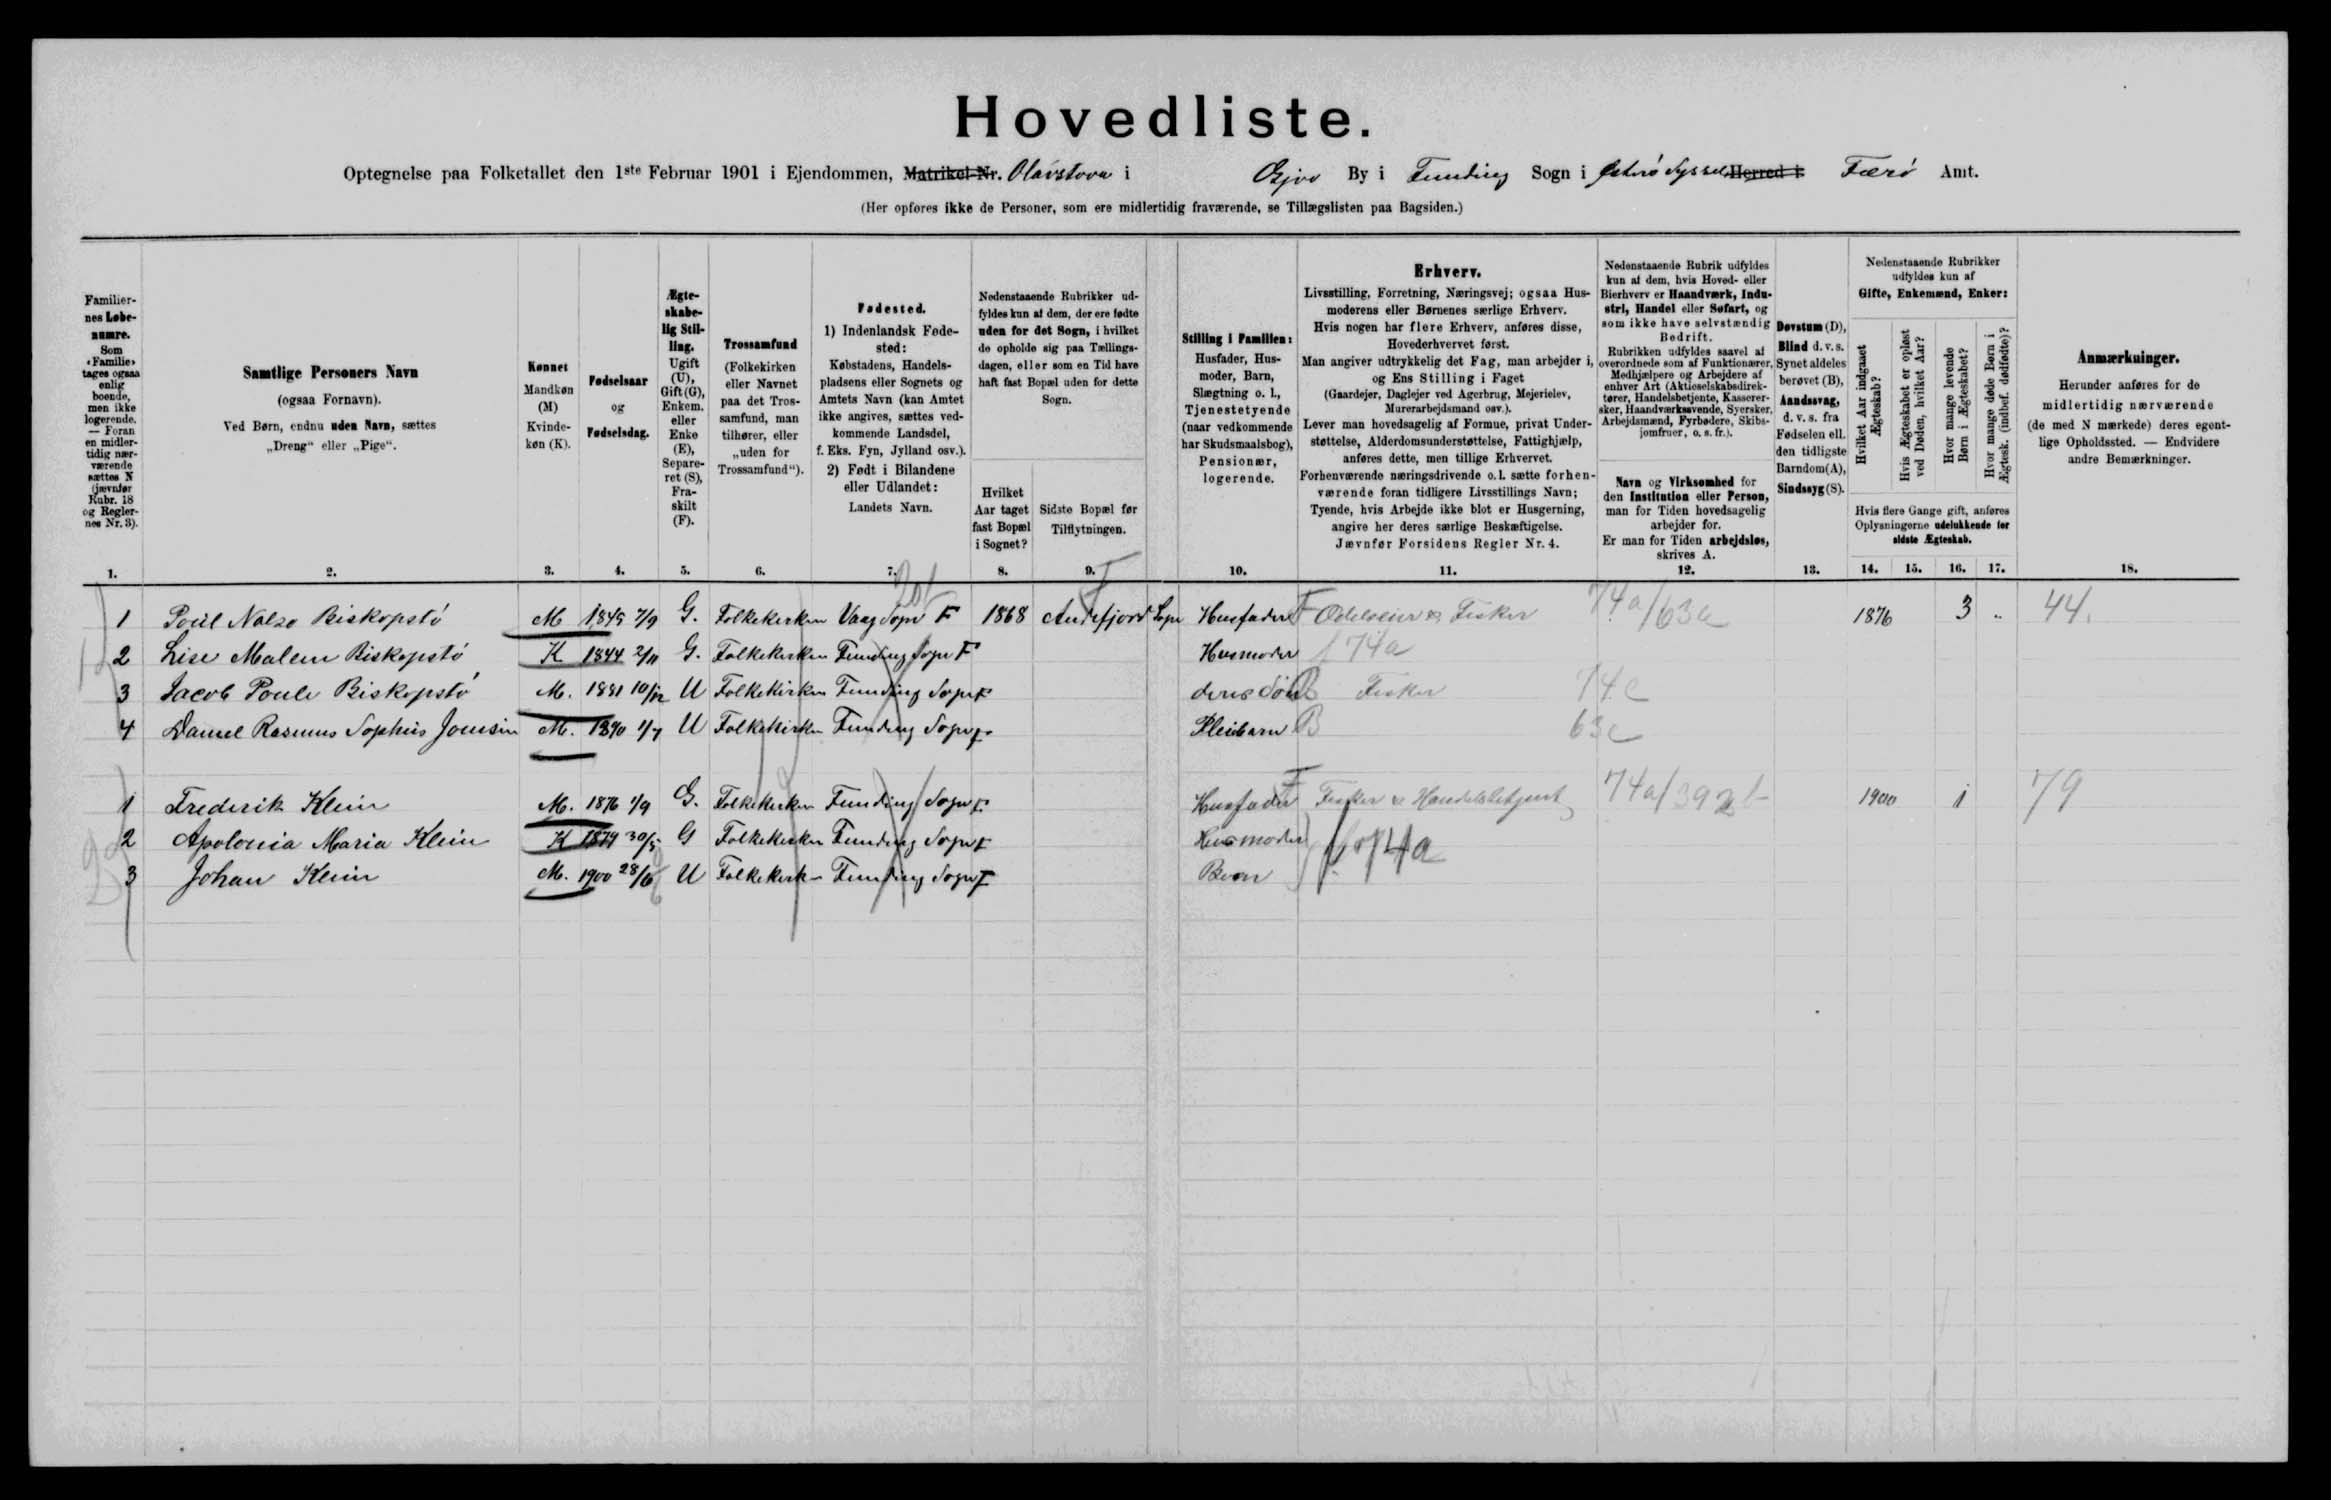 Hovedliste.
Optegnelse paa Folketallet den 1ste Februar 1901 i Ejendommen, Matrikel-Nr. Olavstova i Gjov By i Funding Sogn i Østerø Syssel Herred i Færø Amt.
(Her opføres ikke de Personer, som ere midlertidig fraværende, se Tillægslisten paa Bagsiden.)
Familiernes Løbenumre.
Som «Familie» tages ogsaa enlig boende, men ikke logerende. — Foran en midlertidig nærværende sættes N (jævnfør Rubr. 18 og Reglernes Nr. 3).
Samtlige Personers Navn
(ogsaa Fornavn).
Ved Børn, endnu uden Navn, sættes
„Dreng“ eller „Pige“.
Kønnet
Mandkøn (M)
Kvindekøn (K).
Fødselsaar
og
Fødselsdag.
Ægteskabelig Stilling.
Ugift (U), Gift (G), Enkem. eller Enke (E), Separeret (S), Fraskilt (F).
Trossamfund
(Folkekirken eller Navnet paa det Trossamfund, man tilhører, eller „uden for Trossamfund“).
Fødested.
1) Indenlandsk Fødested:
Købstadens, Handelspladsens eller Sognets og Amtets Navn (kan Amtet ikke angives, sættes vedkommende Landsdel, f. Eks. Fyn, Jylland osv.).
2) Født i Bilandene eller Udlandet:
Landets Navn.
Nedenstaaende Rubrikker udfyldes kun af dem, der ere fødte uden for det Sogn, i hvilket de opholde sig paa Tællingsdagen, eller som en Tid have haft fast Bopæl uden for dette Sogn.
Hvilket Aar taget fast Bopæl i Sognet?
Sidste Bopæl før Tilflytningen.
Stilling i Familien:
Husfader, Husmoder, Barn, Slægtning o. l., Tjenestetyende (naar vedkommende har Skudsmaalsbog), Pensionær, logerende.
Erhverv.
Livsstilling, Forretning, Næringsvej; ogsaa Husmoderens eller Børnenes særlige Erhverv.
Hvis nogen har flere Erhverv, anføres disse, Hovederhvervet først.
Man angiver udtrykkelig det Fag, man arbejder i, og Ens Stilling i Faget
(Gaardejer, Daglejer ved Agerbrug, Mejerielev, Murerarbejdsmand osv.).
Lever man hovedsagelig af Formue, privat Understøttelse, Alderdomsunderstøttelse, Fattighjælp, anføres dette, men tillige Erhvervet.
Forhenværende næringsdrivende o. l. sætte forhenværende foran tidligere Livsstillings Navn;
Tyende, hvis Arbejde ikke blot er Husgerning, angive her deres særlige Beskæftigelse.
Jævnfør Forsidens Regler Nr. 4.
Nedenstaaende Rubrik udfyldes kun af dem, hvis Hoved- eller Bierhverv er Haandværk, Industri, Handel eller Søfart, og som ikke have selvstændig Bedrift.
Rubrikken udfyldes saavel af overordnede som af Funktionærer, Medhjælpere og Arbejdere af enhver Art (Aktieselskabsdirektører, Handelsbetjente, Kasserersker, Haandværkssvende, Syersker, Arbejdsmænd, Fyrbødere, Skibsjomfruer, o. s. fr.).
Navn og Virksomhed for den Institution eller Person, man for Tiden hovedsagelig arbejder for.
Er man for Tiden arbejdsløs, skrives A.
Døvstum (D), Blind d. v. s. Synet aldeles berøvet (B), Aandssvag, d. v. s. fra Fødselen ell. den tidligste Barndom (A), Sindssyg (S).
Nedenstaaende Rubrikker udfyldes kun af Gifte, Enkemænd, Enker:
Hvilket Aar indgaaet Ægteskab?
Hvis Ægteskabet er opløst ved Døden, hvilket Aar?
Hvor mange levende Børn i Ægteskabet?
Hvor mange døde Børn i Ægtesk. (indbef. dødfødte)?
Hvis flere Gange gift, anføres Oplysningerne udelukkende for sidste Ægteskab.
Anmærkninger.
Herunder anføres for de midlertidig nærværende (de med N mærkede) deres egentlige Opholdssted. — Endvidere andre Bemærkninger.
1. 2. 3. 4. 5. 6. 7. 8. 9. 10. 11. 12. 13. 14. 15. 16. 17. 18.
1 Poül Nolsø Biskopstó M 1845 7/9 G. Folkekirken Vaag Sogn F 1868 Andefjord Sogn Husfader F Odelseier og Fisker 74a/63a 1876 3 .. 44.
2 Lise Malene Biskopstó K 1844 2/11 G. Folkekirken Funding Sogn F Husmoder f 74a
3 Jacob Poule Biskopstó M. 1881 10/12 U Folkekirken Funding Sogn F deres Søn B Fisker 74c
4 Daniel Rasmus Sophus Joensen M. 1890 1/7 U Folkekirken Funding Sogn F Pleiebarn B 63c
1 Frederik Klein M. 1876 1/9 G. Folkekirken Funding Sogn F. Husfader F Fisker og Handelsbetjent 74a/392b 1900 1 79
2 Apolonia Maria Klein K 1879 30/5 G Folkekirken Funding Sogn F Husmoder f 74a
3 Johan Klein M. 1900 28/6 U Folkekirk- Funding Sogn F Barn